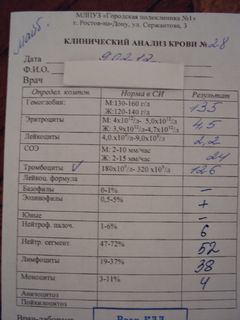 МЛПУЗ «Городская поликлиника №1»
г. Ростов-на-Дону, ул. Сержантова, 3
КЛИНИЧЕСКИЙ АНАЛИЗ КРОВИ № 28
Дата
Ф.И.О.
Врач
Определ. колтов. Норма в СИ Результат
Гемоглобин: М:130-160 г/л
Ж:120-140 г/л 135
Эритроциты М: 4х10¹²/л- 5,0х10¹²/л
Ж: 3,9х10¹²/л-4,7х10¹²/л 4,5
Лейкоциты 4,0х10⁹/л-9,0х10⁹/л 2,2
СОЭ М: 2-10 мм/час
Ж: 2-15 мм/час 24
Тромбоциты 180х10⁹/л- 320 х10⁹/л 126
Лейкоц. формула
Базофилы 0-1% –
Эозинофилы 0,5-5% +
Юные –
Нейтроф. палоч. 1-6% 6
Нейтр. сегмент 47-72% 52
Лимфоциты 19-37% 38
Моноциты 3-11% 4
Анизоцитоз
Пойкилоцитоз